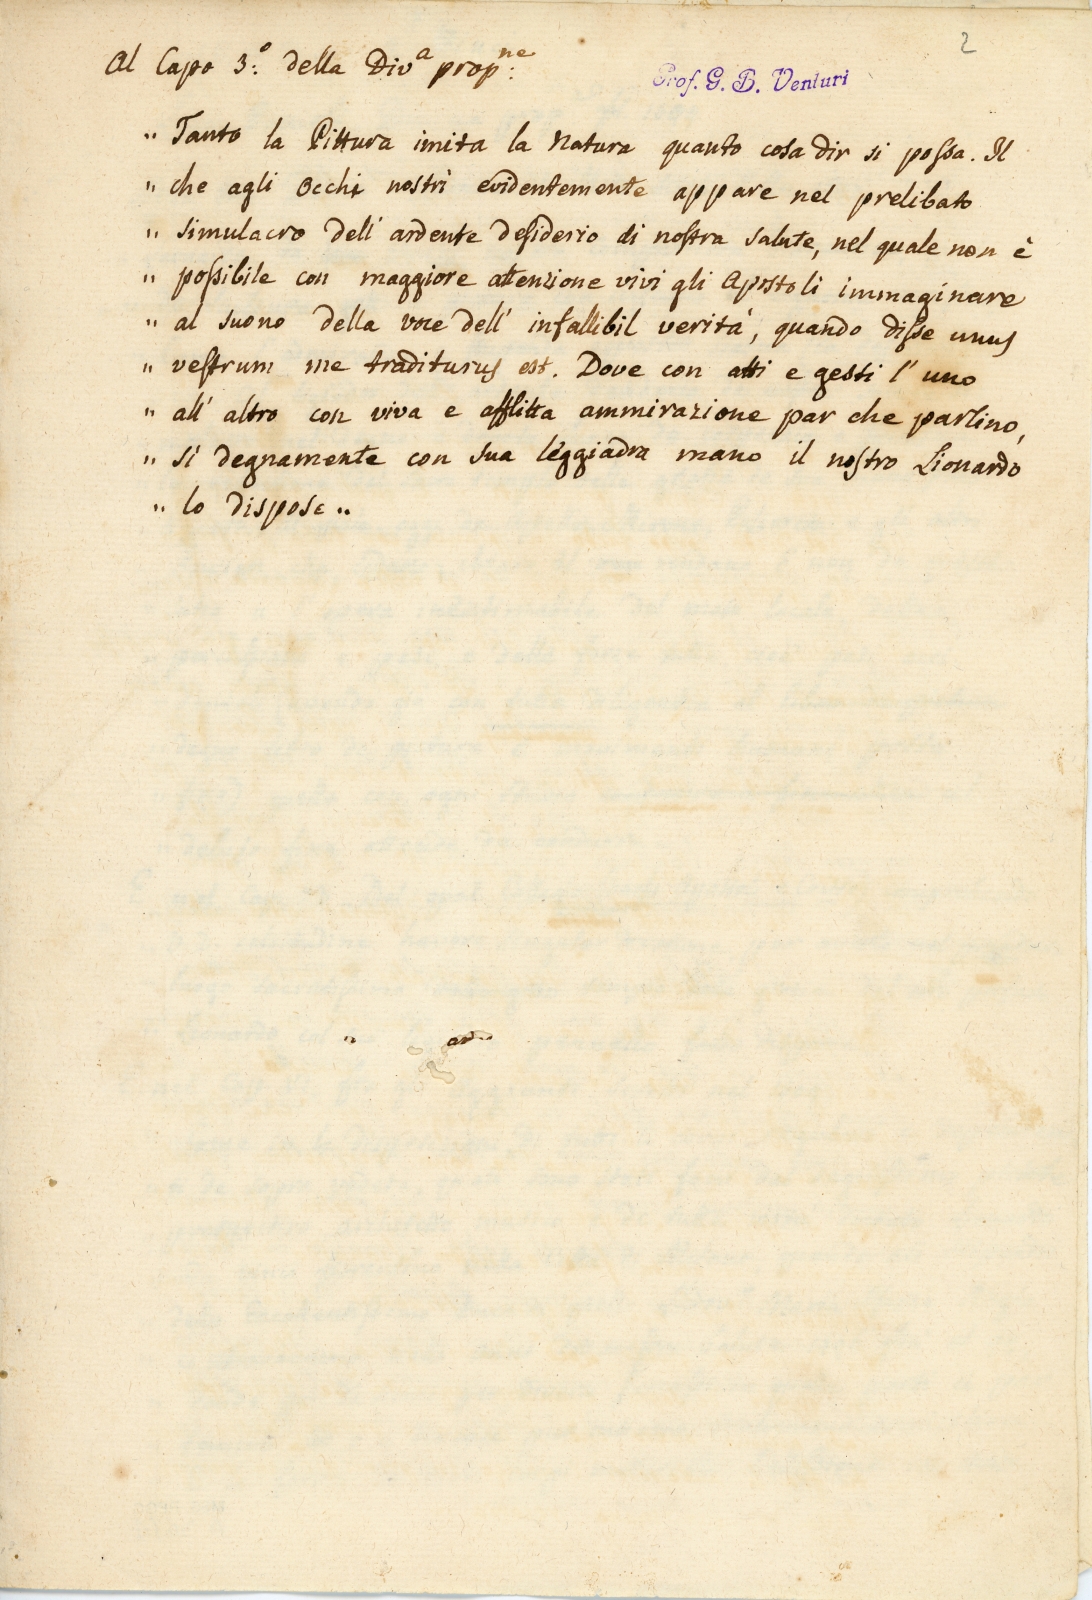 2
Al Capo 3.º della Div.ª prop.ne
Prof. G. B. Venturi
" Tanto la Pittura imita la Natura quanto cosa dir si possa. Il
" che agli occhi nostri evidentemente appare nel prelibato
" simulacro dell' ardente desiderio di nostra salute, nel quale non è
" possibile con maggiore attenzione vivi gli Apostoli immaginare
" al suono della voce dell' infallibil verità, quando disse unus
" vestrum me traditurus est. Dove con atti e gesti l' uno
" all' altro con viva e afflitta ammirazione par che parlino,
" sì degnamente con sua leggiadra mano il nostro Lionardo
" lo dispose "